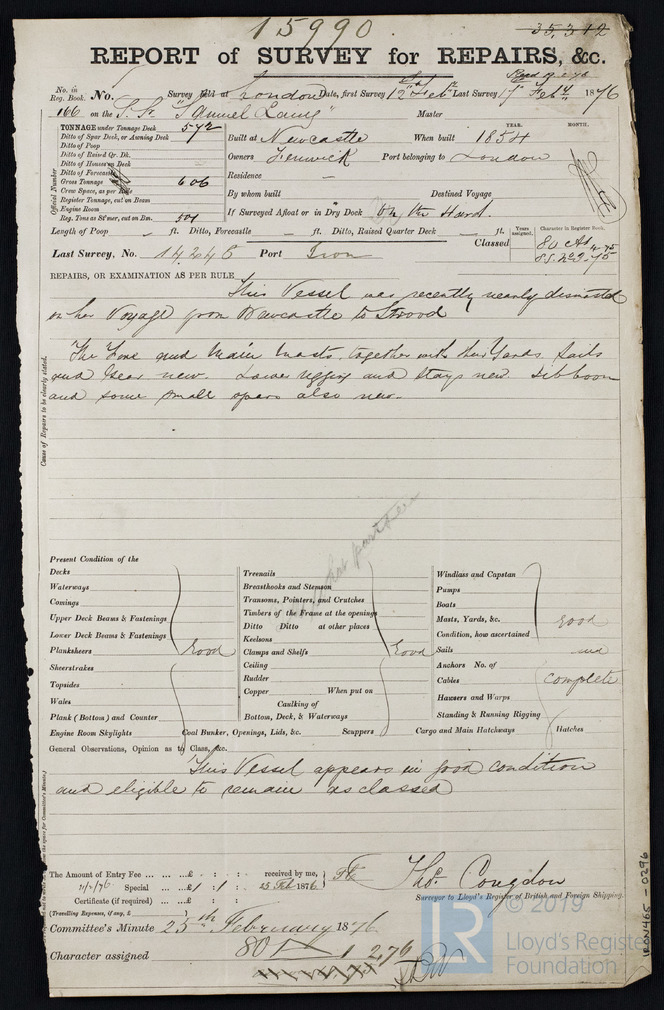 15990.
35,312
REPORT of SURVEY for REPAIRS, &c.
No. in Reg. Book. No. Survey held at London Date, first Survey 12th Feby Last Survey 17 Feby 1876
166 on the S.S. "Samuel Laing" Master
TONNAGE under Tonnage Deck 572
Ditto of Spar Deck, or Awning Deck
Ditto of Poop
Ditto of Raised Qr. Dk.
Ditto of Houses on Deck
Ditto of Forecastle
Gross Tonnage 606
Crew Space, as per Rule
Register Tonnage, cut on Beam
Engine Room
Reg. Tons as St'mer, cut on Bm. 501
Official Number
YEAR. MONTH.
Built at Newcastle When built 1854
Owners Fenwick Port belonging to London
Residence —
By whom built Destined Voyage
If Surveyed Afloat or in Dry Dock On the Hard.
Length of Poop — ft. Ditto, Forecastle — ft. Ditto, Raised Quarter Deck — ft.
Years assigned. Character in Register Book.
Classed 80 A1 4.75
SS. No 2-75
Last Survey, No. 14246 Port Iron
REPAIRS, OR EXAMINATION AS PER RULE
This Vessel was recently nearly dismasted
on her Voyage from Newcastle to Strood
The Fore and Main Masts, together with their Yards, Sails
and Gear new. Lower rigging and stays new. Jibboom
and some small spars also new.
Cause of Repairs to be clearly stated.
Present Condition of the
Decks
Waterways
Comings
Upper Deck Beams & Fastenings
Lower Deck Beams & Fastenings
Planksheers Good
Sheerstrakes
Topsides
Wales
Plank (Bottom) and Counter
Engine Room Skylights
Treenails
Breasthooks and Stemson
Transoms, Pointers, and Crutches
Timbers of the Frame at the openings
Ditto Ditto at other places
Keelsons
Clamps and Shelfs Good
Ceiling
Rudder
Copper When put on
Caulking of
Bottom, Deck, & Waterways
Coal Bunker, Openings, Lids, &c. Scuppers
Windlass and Capstan
Pumps
Boats
Masts, Yards, &c. Good
Condition, how ascertained
Sails and
Anchors No. of
Cables complete
Hawsers and Warps
Standing & Running Rigging
Cargo and Main Hatchways Hatches
General Observations, Opinion as to Class, &c.
This Vessel appears in good condition
and eligible to remain as classed
The Amount of Entry Fee ... ... ...£ : : received by me,
Special ... ...£ 1 : 1 : 25 Feb 1876
Certificate (if required) ... ...£ : :
(Travelling Expenses, if any, £
Thos. Congdon
Surveyor to Lloyd's Register of British and Foreign Shipping.
Committee's Minute 25th February 1876
Character assigned 80 A 1 2,76
IRON465-0296
LR
© 2019
Lloyd's Register
Foundation